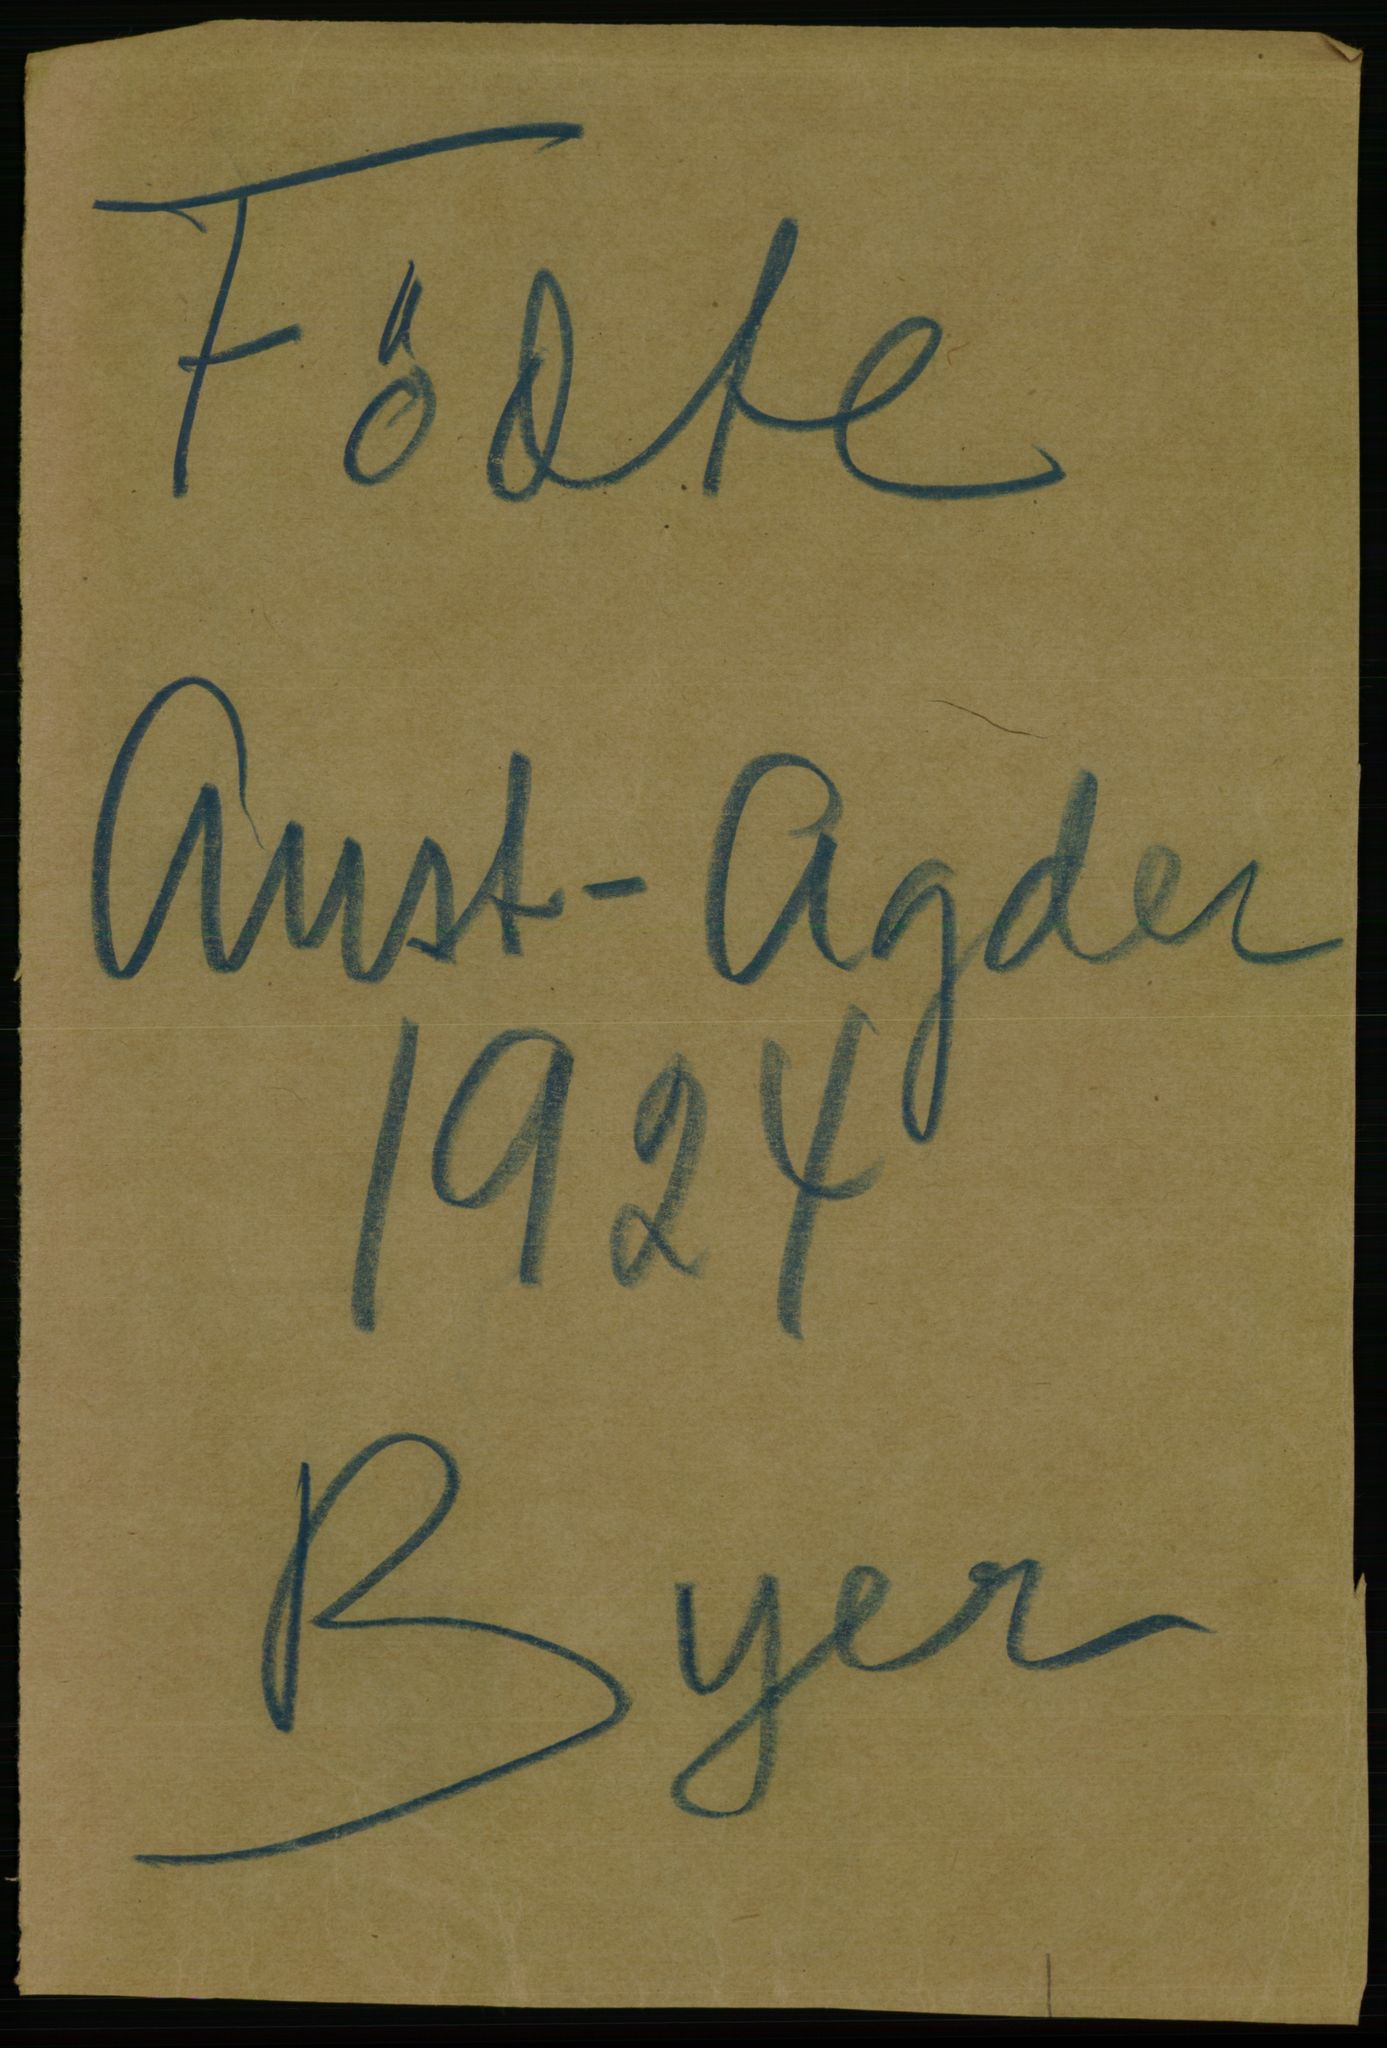 Födte
Aust-Agder
1924
Byer